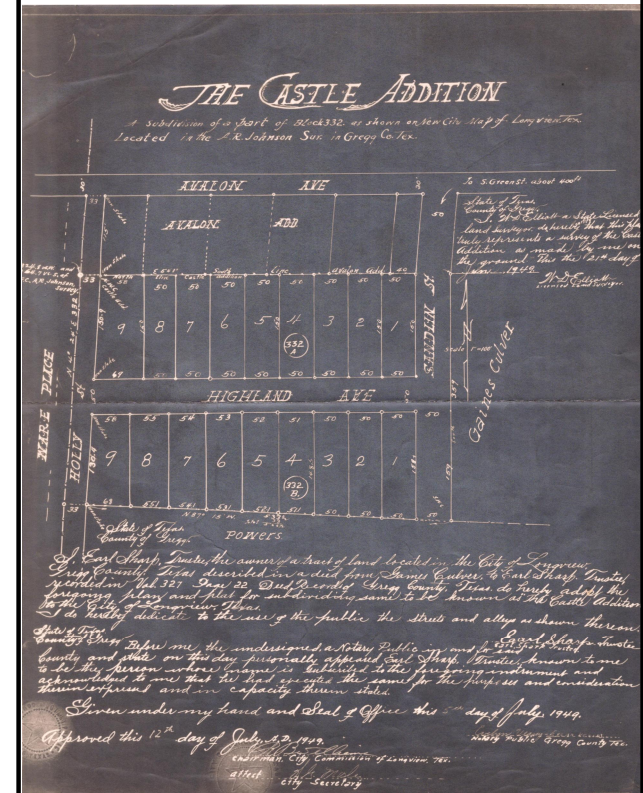 THE CASTLE ADDITION
A Subdivision of a part of Block 332 as shown on New City Map of Longview, Tex.
Located in the A.R. Johnson Sur. in Gregg Co. Tex.
To S. Green St. about 400 ft
AVALON AVE
33
50
State of Texas
County of Gregg
I W.D. Elliott a State Licensed
land surveyor do hereby
truly represents a survey of the
Addition as made by me on
the ground. This the 21st day of
1949
W.D. Elliott
Licensed Land Surveyor
AVALON ADD.
33
A.R. Johnson
Survey
North Line Castle Addition South Line Avalon Add. 40
50 50 50 50 50 50 50 50
9 8 7 6 5 4 3 2 1
332
A
130.9
SANDLIN St
Scale 1"=100'
67 50 50 50 50 50 50 50 50
Gaines Culver
WARE PLACE
HOLLY St
50
HIGHLAND AVE
50
357
56 53 54 53 52 51 50 50 50 50
130.9
9 8 7 6 5 4 3 2 1
332
B
159
33
63 551 541 531 521 501 50 50 50
POWERS
State of Texas
County of Gregg
I, Earl Sharp, Trustee, the owner of a tract of land located in the City of Longview,
Gregg County, Texas described in a deed from James Culver, to Earl Sharp, Trustee,
recorded in Vol. 327 Page 122 Deed Records Gregg County, Texas do hereby adopt the
foregoing plan and plat for subdividing same to be known as The Castle Addition
to the City of Longview, Texas.
I do hereby dedicate to the use of the public the streets and alleys as shown thereon
Earl Sharp Trustee
Earl Sharp Trustee
State of Texas
County of Gregg
Before me the undersigned, a Notary Public in and for
County and State on this day personally appeared Earl Sharp, Trustee, known to me
to be the person whose name is subscribed to the foregoing instrument and
acknowledged to me that he had executed the same for the purposes and consideration
therein expressed and in capacity therein stated.
Given under my hand and Seal of Office this day of July, 1949.
Notary Public Gregg County Tex.
Approved this 12th day of July, A.D. 1949.
Chairman, City Commission of Longview, Tex.
attest
City Secretary